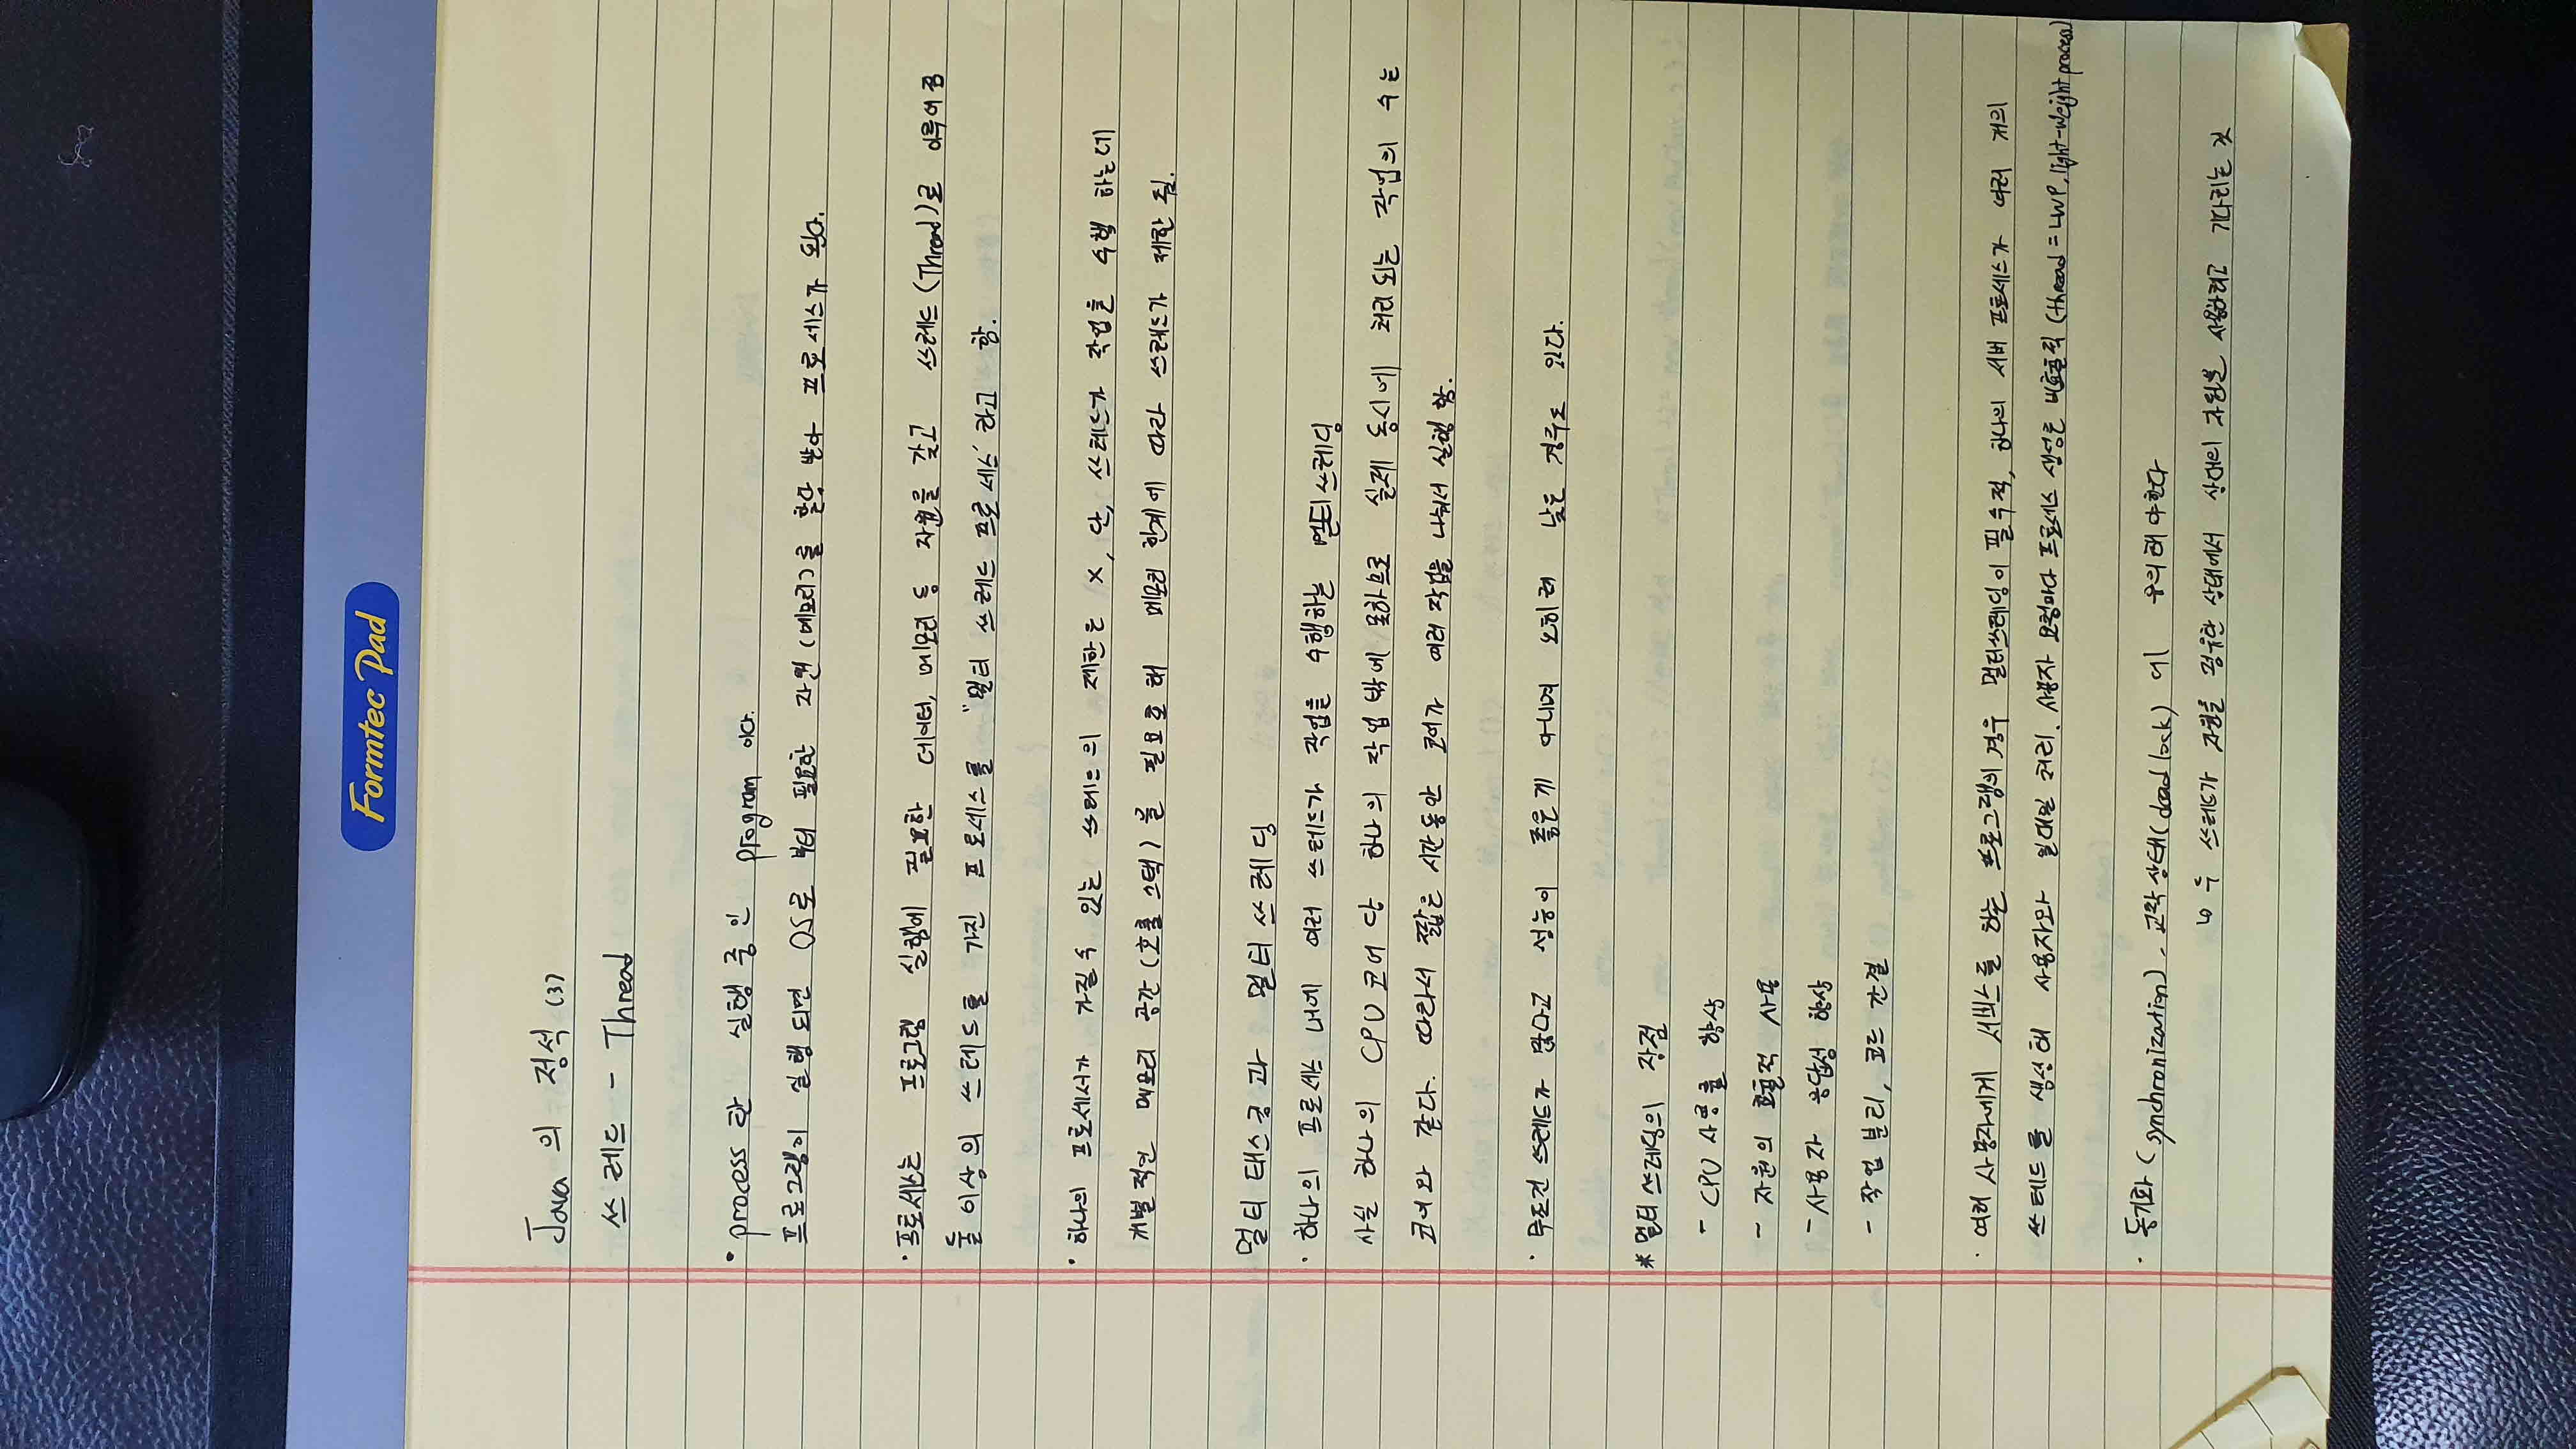 Formtec Pad
Java 의 정석 (3)
쓰레드 - Thread
• process 란 실행 중인 program 이다.
프로그램이 실행되면 OS로 부터 필요한 자원(메모리)를 할당 받아 프로세스가 된다.
· 프로세스는 프로그램 실행에 필요한 데이터, 메모리 등 자원을 갖고 쓰레드(Thread)로 이루어 짐
둘 이상의 쓰레드를 가진 프로세스를 "멀티 쓰레드 프로세스' 라고 함.
• 하나의 프로세서가 가질 수 있는 쓰레드의 제한은 X, 단, 쓰레드가 작업을 수행 하는데
개별적인 메모리 공간(호출 스택)을 필요로 해 메모리 한계에 따라 쓰레드가 제한 됨.
멀티 태스킹 과 멀티 쓰레딩
· 하나의 프로세스 내에 여러 쓰레드가 작업을 수행하는 멀티쓰레딩
사실 하나의 CPU 코어 당 하나의 작업 밖에 못하므로 실제 동시에 처리되는 작업의 수는
코어와 같다. 따라서 짧은 시간동안 코어가 여러 작업을 나눠서 실행 함.
· 무조건 쓰레드가 많다고 성능이 좋은게 아니며 오히려 낮은 경우도 있다.
* 멀티 쓰레딩의 장점
- CPU 사용률 향상
- 자원의 효율적 사용
- 사용자 응답성 향상
- 작업 분리, 코드 간결
· 여러 사용자에게 서비스를 하는 프로그램의 경우 멀티쓰레딩이 필수적, 하나의 서버 프로세스가 여러 개의
쓰레드를 생성해 사용자와 일대일 처리. 사용자 요청마다 프로세스 생성은 비효율적 (thread = LWP, light-weight process)
· 동기화(synchronization), 교착상태(dead lock) 에 유의해야한다
↳ 두 쓰레드가 자원을 점유한 상태에서 상대의 자원을 사용하려고 기다리는 것